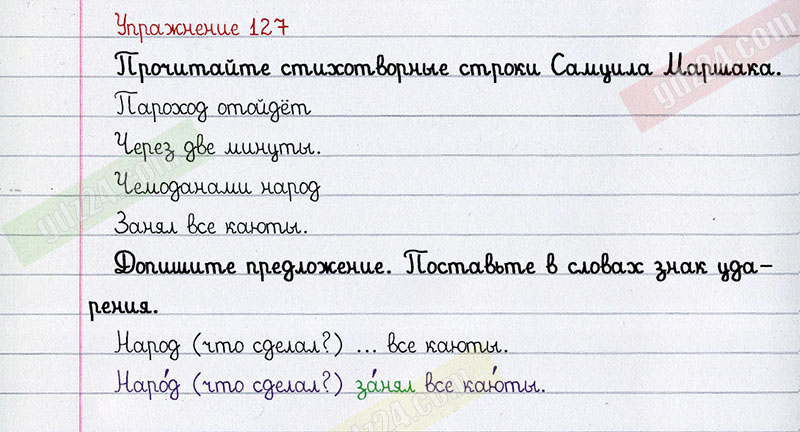 Упражнение 127
Прочитайте стихотворные строки Самуила Маршака.
Пароход отойдёт
Через две минуты.
Чемоданами народ
Занял все каюты.
Допишите предложение. Поставьте в словах знак уда–
рения.
Народ (что сделал?) ... все каюты.
Наро́д (что сделал?) за́нял все каю́ты.
gdz24.com
gdz24.com
gdz24.com